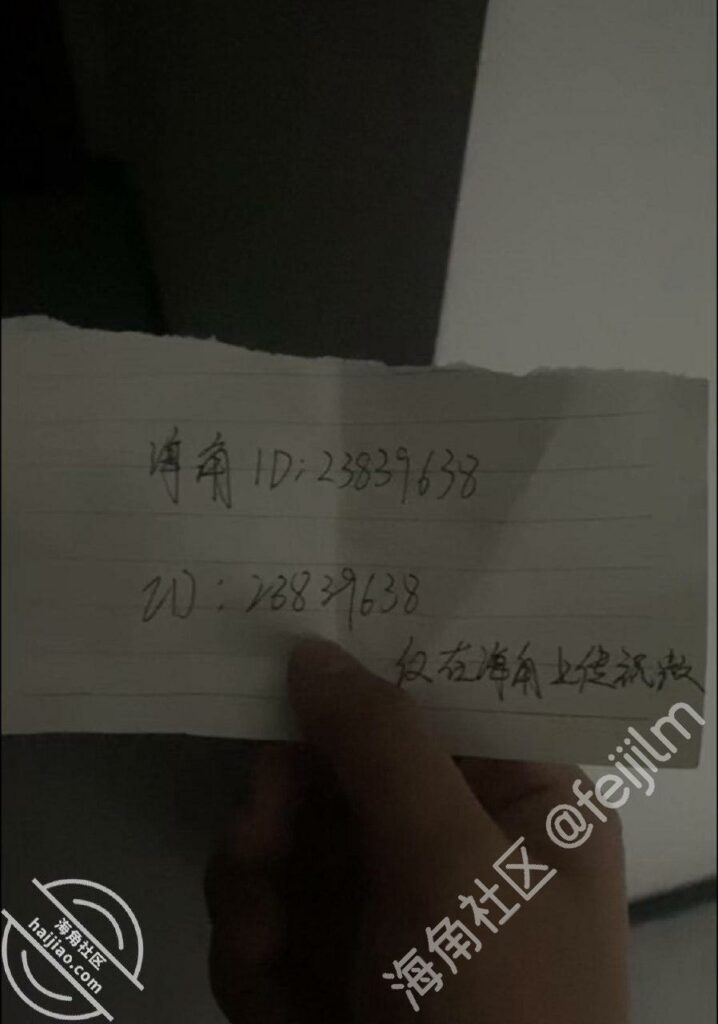 海角ID:23839638
ID:23839638
仅在海角上传视频
海角社区 @feijilm
海角社区
haijiao.com